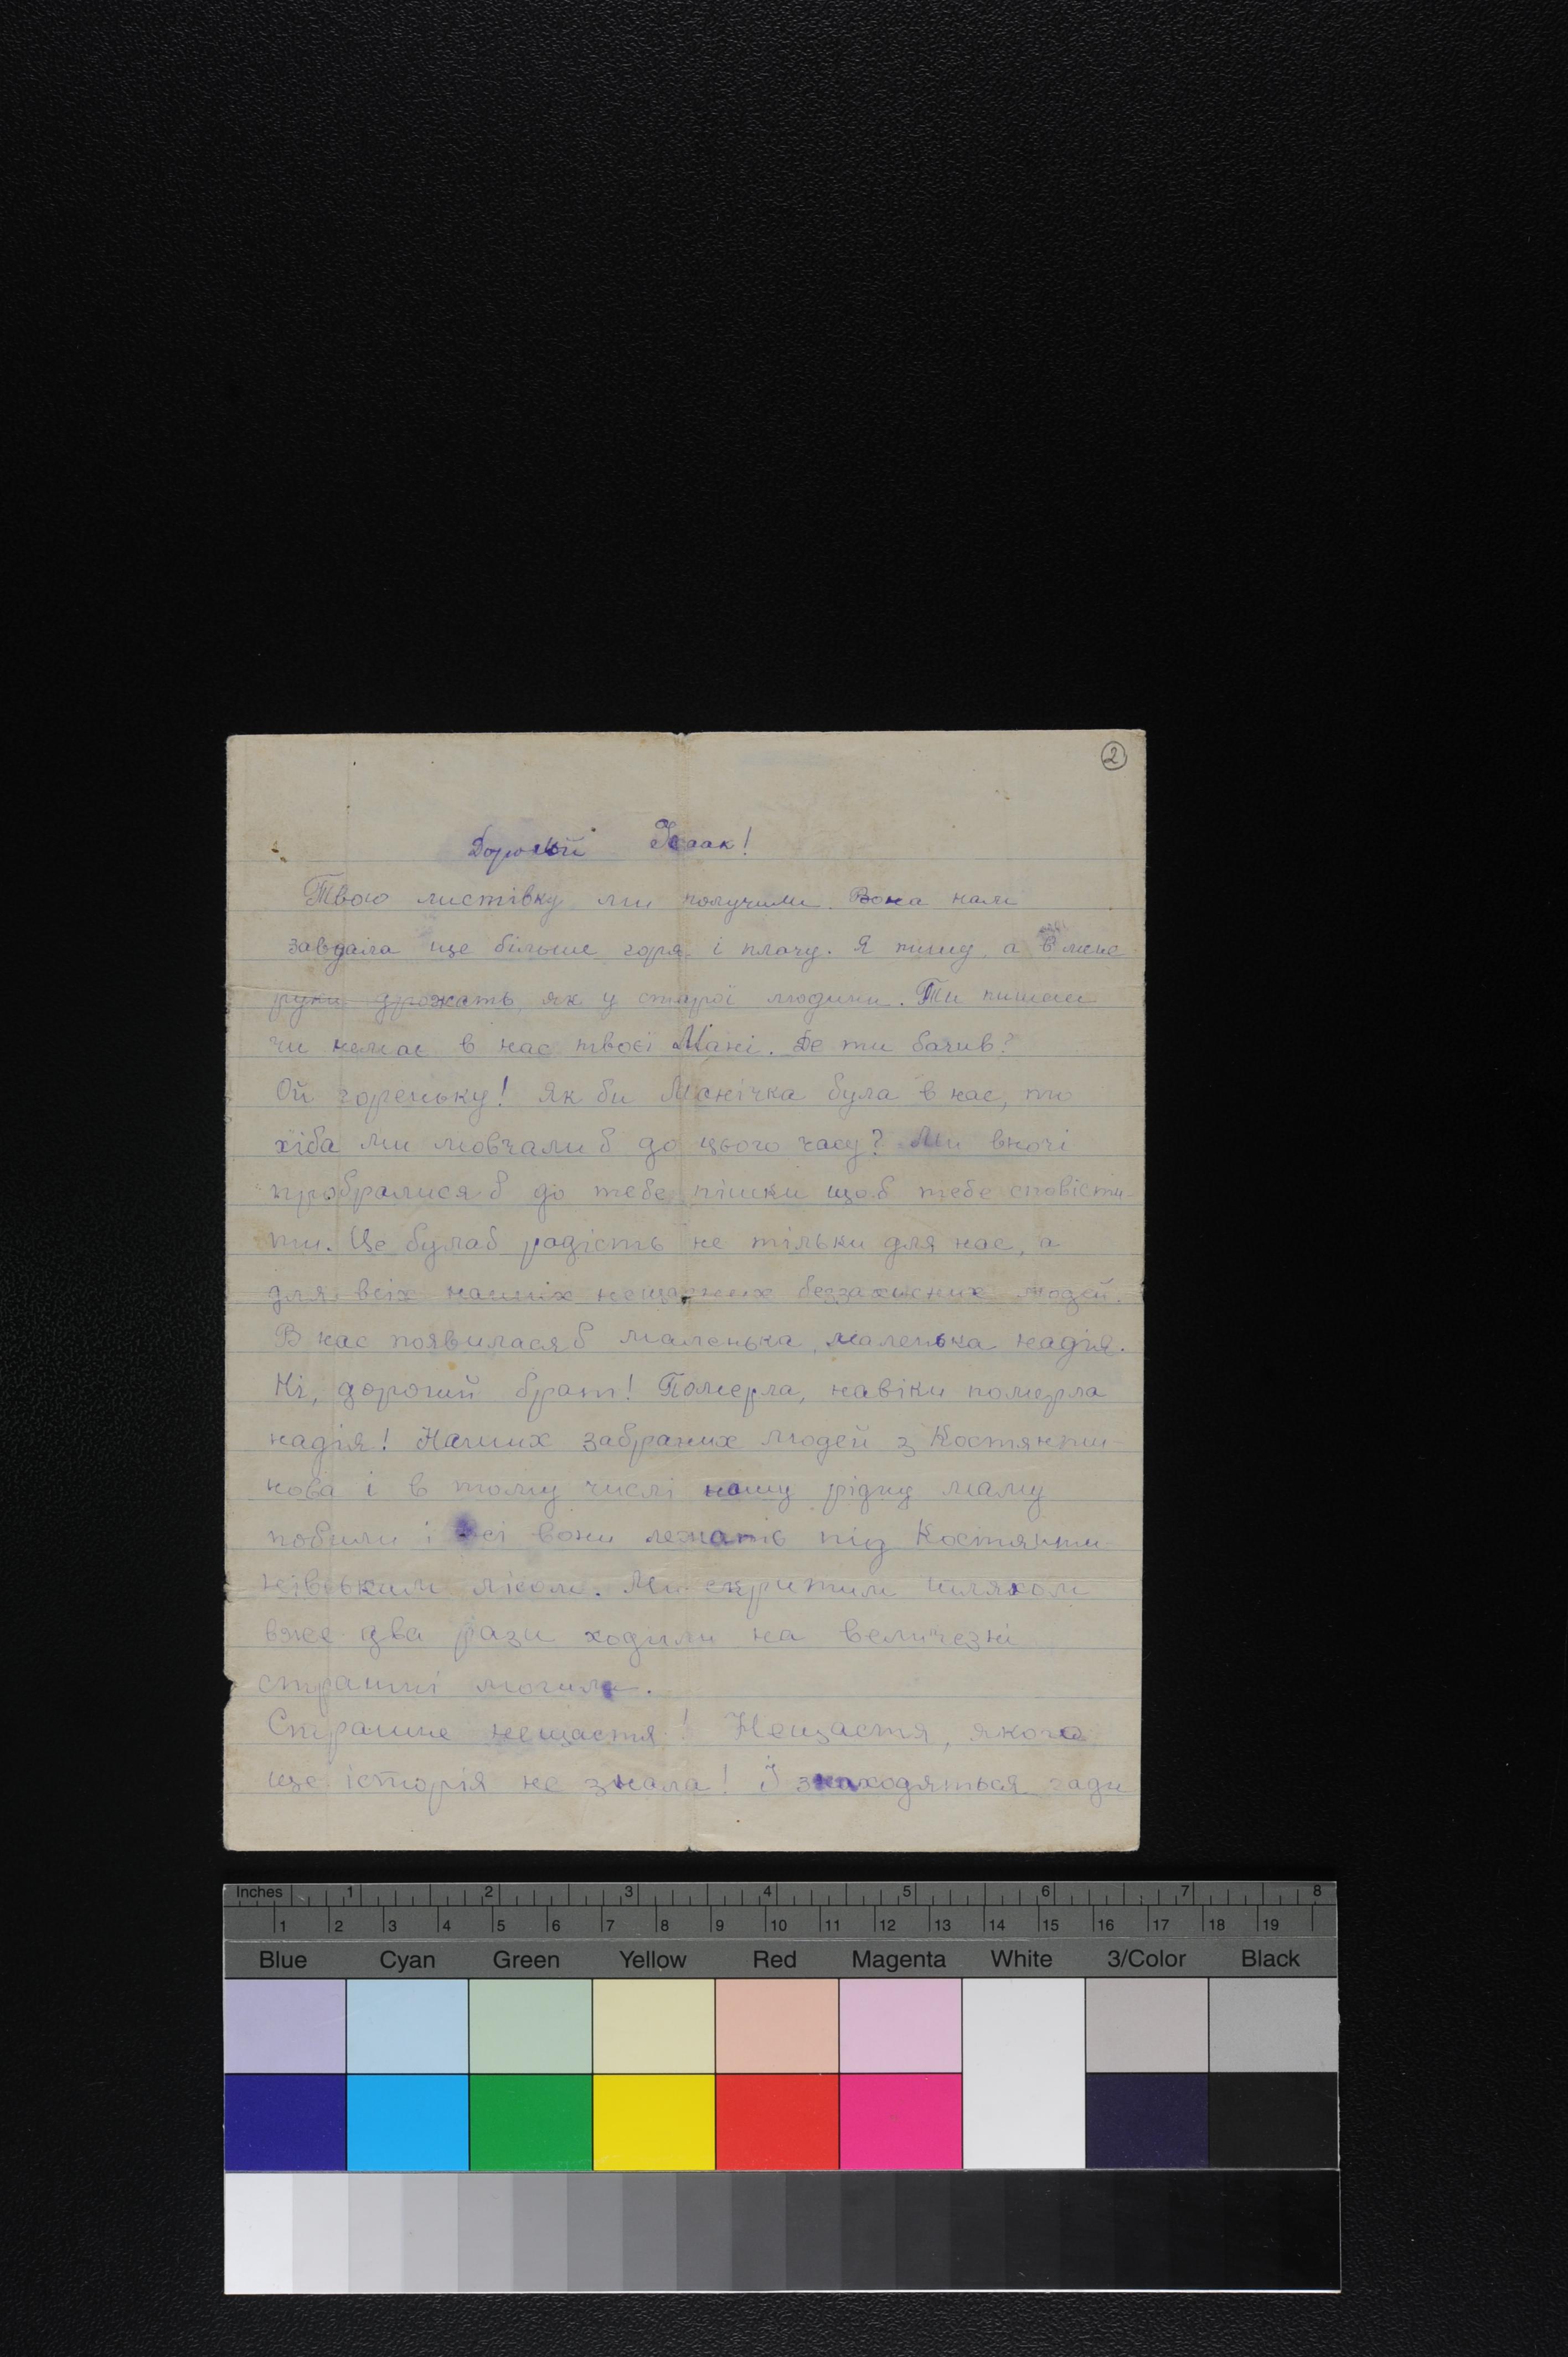 2
Дорогий Ісаак!
Твою листівку ми получили. Вона нам
завдала ще більше горя і плачу. Я пишу, а в мене
руки дрожать, як у старої людини. Ти пишеш
чи немає в нас твоєї Мані. Де ти бачив?
Ой гореньку! Як би Манічка була в нас, то
хіба ми мовчали б до цього часу? Ми вночі
пробралися б до тебе пішки щоб тебе сповісти-
ти. Це булаб радість не тільки для нас, а
для всіх наших нещасних беззахисних людей.
В нас появилася б маленька, маленька надія.
Ні, дорогий брат! Померла, навіки померла
надія! Наших забраних людей з Костянти-
нова і в тому числі нашу рідну маму
побили і всі вони лежать під Костянти-
нівським лісом. Ми скритим шляхом
вже два рази ходили на величезні
страшні могили.
Страшне нещастя! Нещастя, якого
ще історія не знала! І знаходяться гади
Inches 1 2 3 4 5 6 7 8
1 2 3 4 5 6 7 8 9 10 11 12 13 14 15 16 17 18 19
Blue Cyan Green Yellow Red Magenta White 3/Color Black